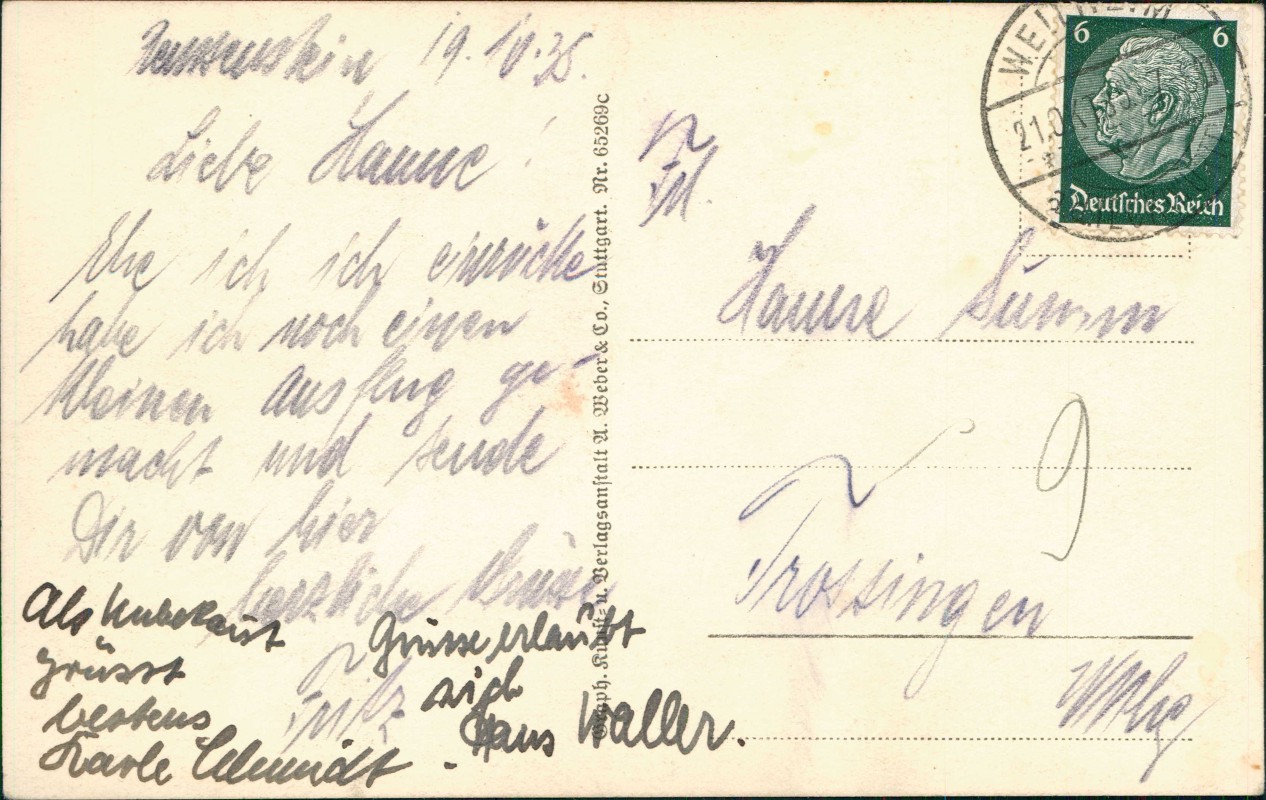 19.10.35.
Liebe Hanne!
Ehe ich ich einrücke
habe ich noch einen
kleinen Ausflug ge-
macht und sende
Dir von hier
herzliche Grüsse
Fritz
Als Unbekannt
grüsst
bestens
Karle Schmidt.
Grüsse erlaubt
sich
Hans Waller.
Graph. Kunst- u. Verlagsanstalt A. Weber & Co., Stuttgart. Nr. 65269c
6 6
Deutsches Reich
Frl.
Hanne
9
Trossingen
Wttbg